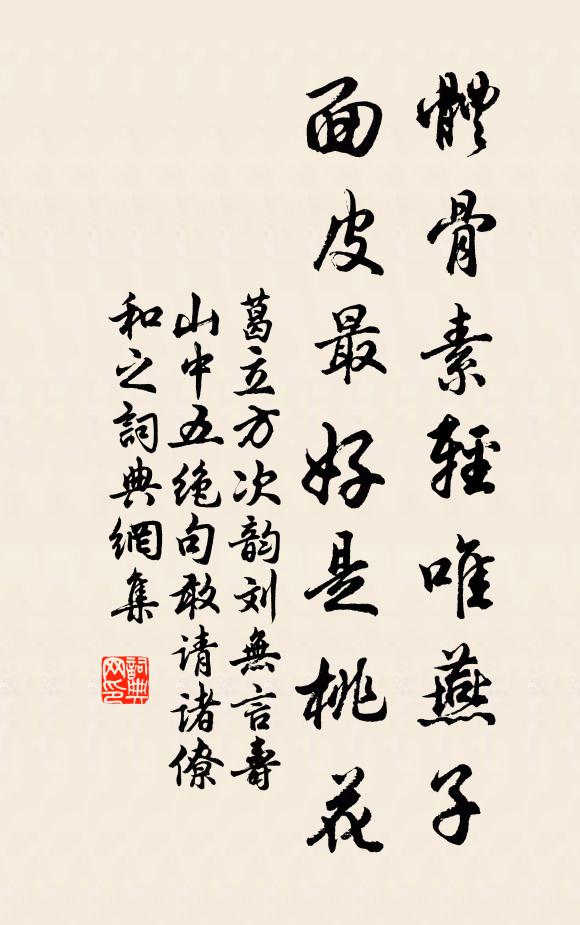 體骨素輕唯燕子
面皮最好是桃花
葛立方次韵刘無言壽
山中五绝句敢请诸僚
和之詞典網集
詞典网印